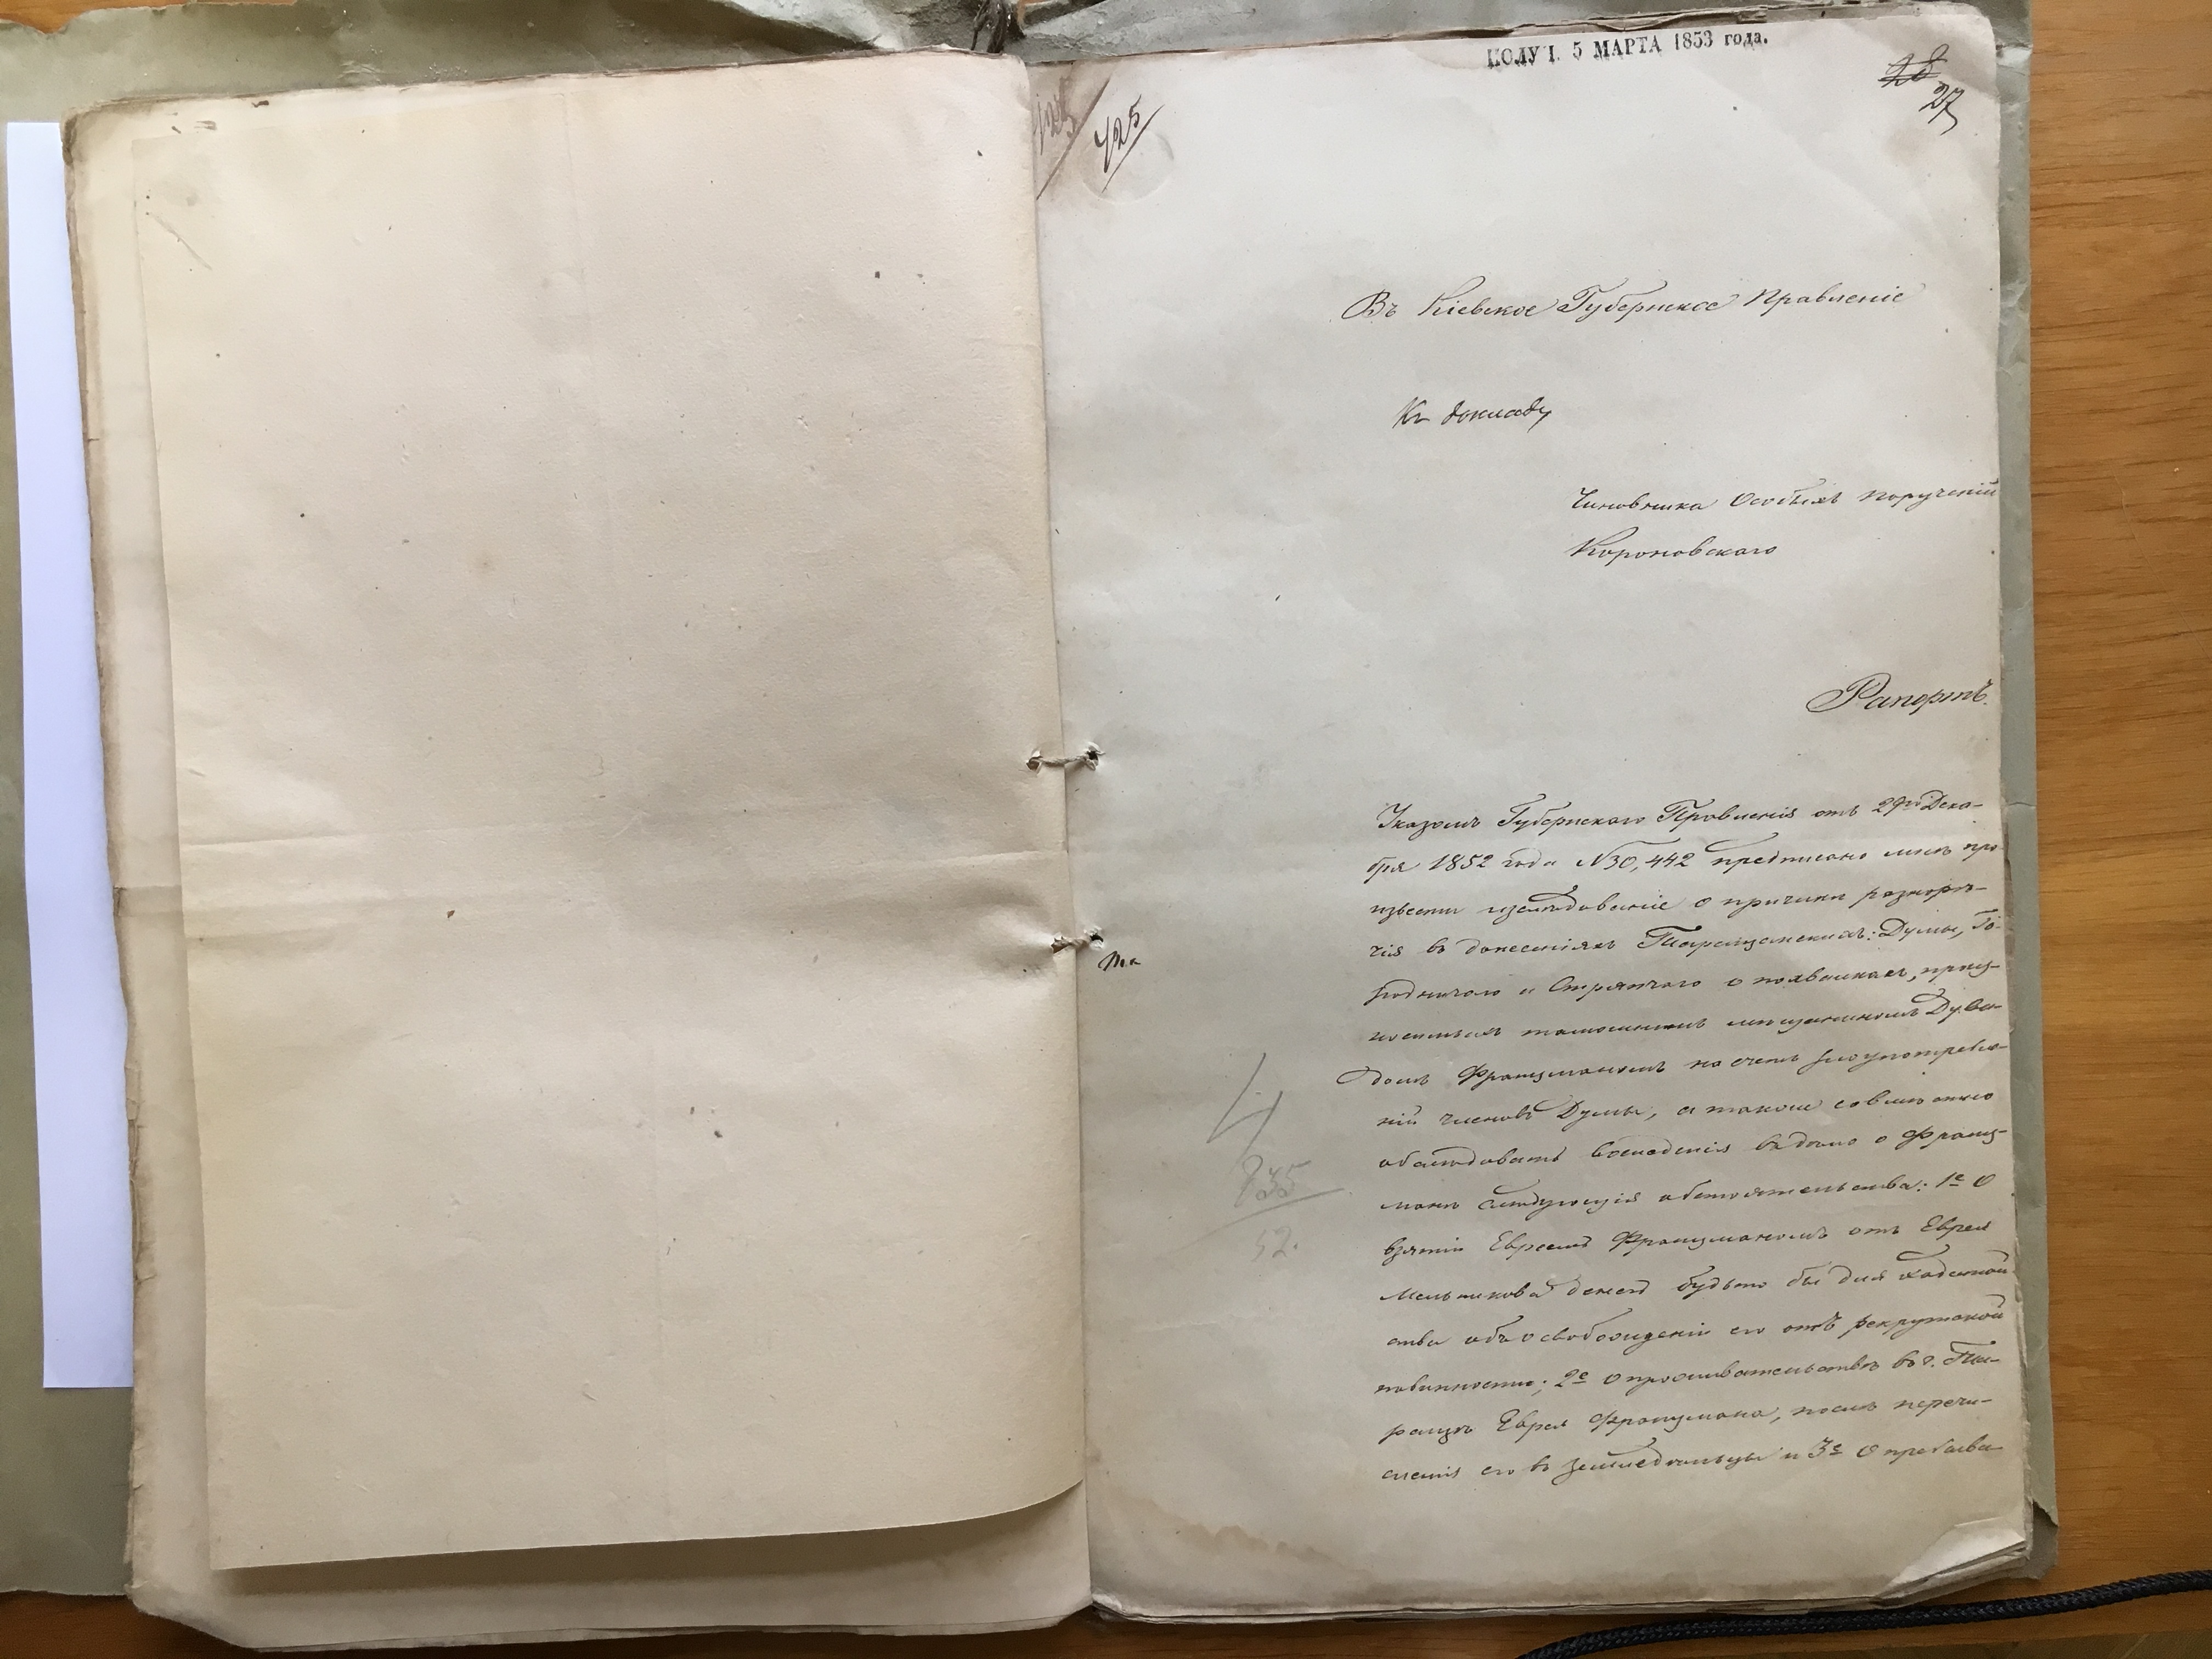 ПОЛУЧ. 5 МАРТА 1853 года.
28
27
125
425
Въ Кіевское Губернское Правленіе
Къ докладу
Чиновника Особыхъ порученій
Короновскаго
Рапортъ.
Указомъ Губернскаго Правленія отъ 29го Дека-
бря 1852 года №30,442 предписано мнѣ про-
извести изслѣдованіе о причинѣ разнорѣ-
чія въ донесеніяхъ Таращанскихъ: Думы, Го-
родничаго и Стряпчаго о похвалкахъ, произ-
носимыхъ тамошнимъ мѣщаниномъ Дуви-
домъ Францманомъ на счетъ злоупотребле-
ній членовъ Думы, а также совмѣстно
обслѣдовать всѣ свѣденія въ дѣлѣ о Францъ-
манѣ слѣдующія обстоятельства: 1е О
взятіи Евреемъ Францманомъ отъ Еврея
Мельникова денегъ будьто бы для ходатай-
ства объ освобожденіи его отъ рекрутской
повинности; 2е О проживательствѣ въ г. Та-
ращѣ Еврея Францмана, послѣ перечи-
сленія его въ земледѣльцы и 3е О пребыва-
4
835
52.